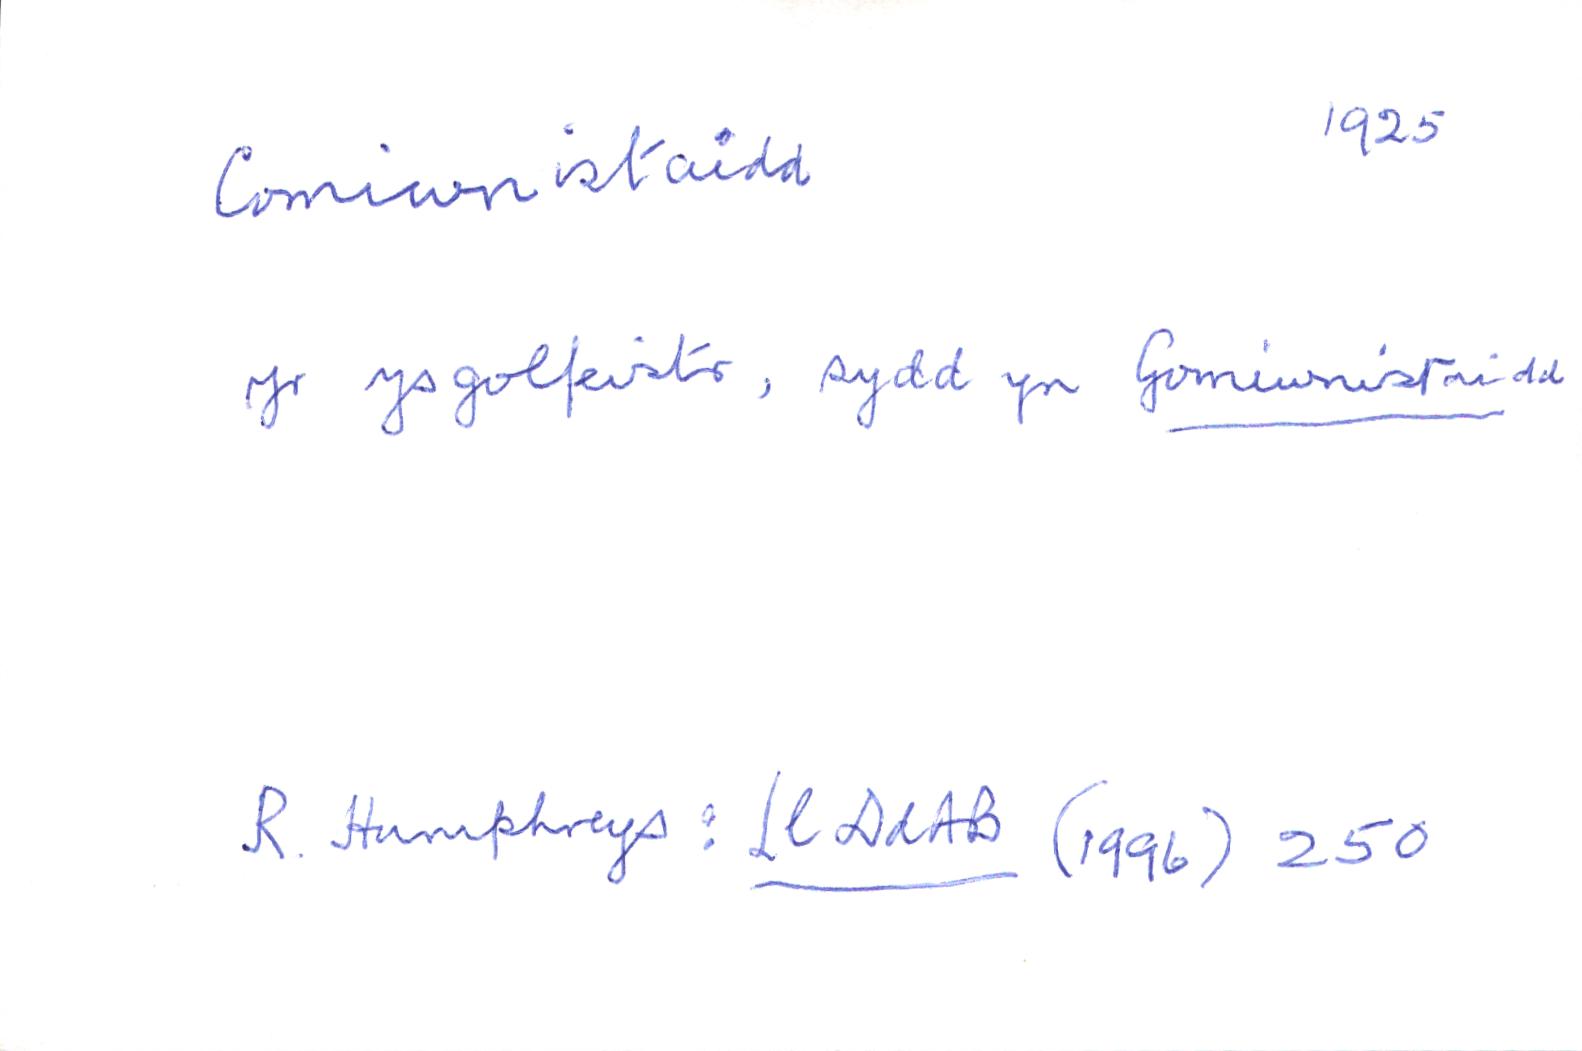 1925
Comiwnistaidd
yr ysgolfeistr, sydd yn Gomiwnistaidd
R. Humphreys: Ll DdAB (1996) 250